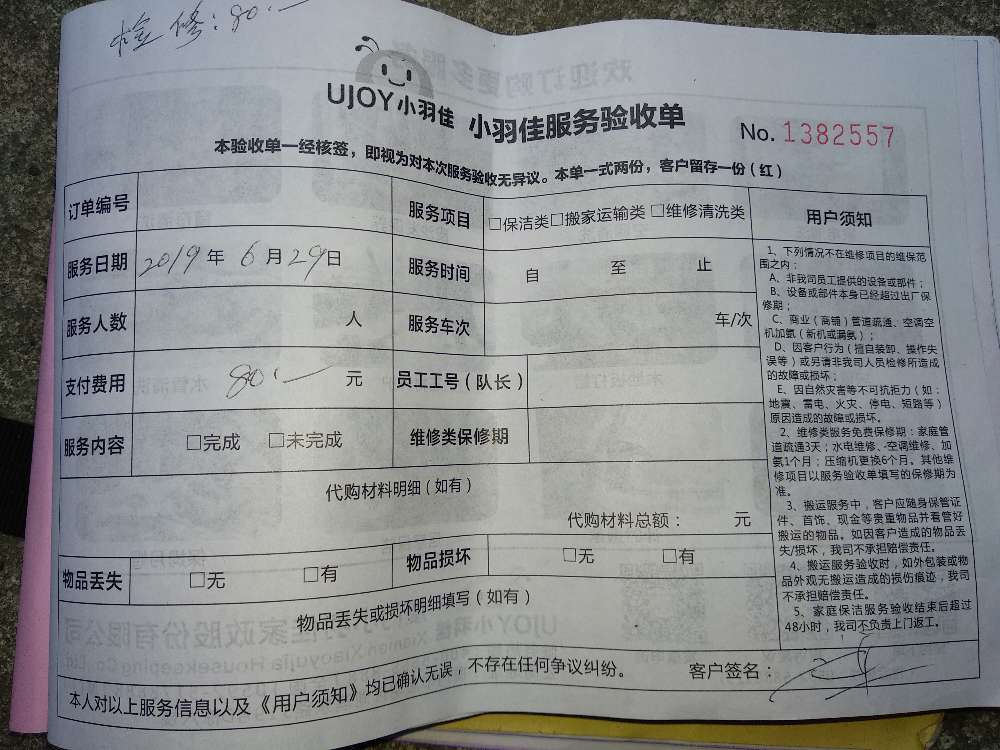 检修：80.—
UJOY小羽佳 小羽佳服务验收单
No. 1382557
本验收单一经核签，即视为对本次服务验收无异议。本单一式两份，客户留存一份（红）
订单编号 服务项目 □保洁类□搬家运输类 □维修清洗类
服务日期 2019年 6月29日 服务时间 自 至 止
服务人数 人 服务车次 车/次
支付费用 80.— 元 员工工号（队长）
服务内容 □完成 □未完成 维修类保修期
代购材料明细（如有）
代购材料总额： 元
物品丢失 □无 □有 物品损坏 □无 □有
物品丢失或损坏明细填写（如有）
本人对以上服务信息以及《用户须知》均已确认无误，不存在任何争议纠纷。 客户签名：
用户须知
1、下列情况不在维修项目的维保范
围之内：
A、非我司员工提供的设备或部件；
B、设备或部件本身已经超过出厂保
修期；
C、商业（商铺）管道疏通、空调空
机加氨（新机或漏氨）；
D、因客户行为（擅自装卸、操作失
误等）或另请非我司人员检修所造成
的故障或损坏；
E、因自然灾害等不可抗拒力（如：
地震、雷电、火灾、停电、短路等）
原因造成的故障或损坏。
2、维修类服务免费保修期：家庭管
道疏通3天；水电维修、空调维修、加
氨1个月；压缩机更换6个月。其他维
修项目以服务验收单填写的保修期为
准。
3、搬运服务中，客户应随身保管证
件、首饰、现金等贵重物品并看管好
搬运的物品。如因客户造成的物品丢
失/损坏，我司不承担赔偿责任。
4、搬运服务验收时，如外包装或物
品外观无搬运造成的损伤痕迹，我司
不承担赔偿责任。
5、家庭保洁服务验收结束后超过
48小时，我司不负责上门返工。